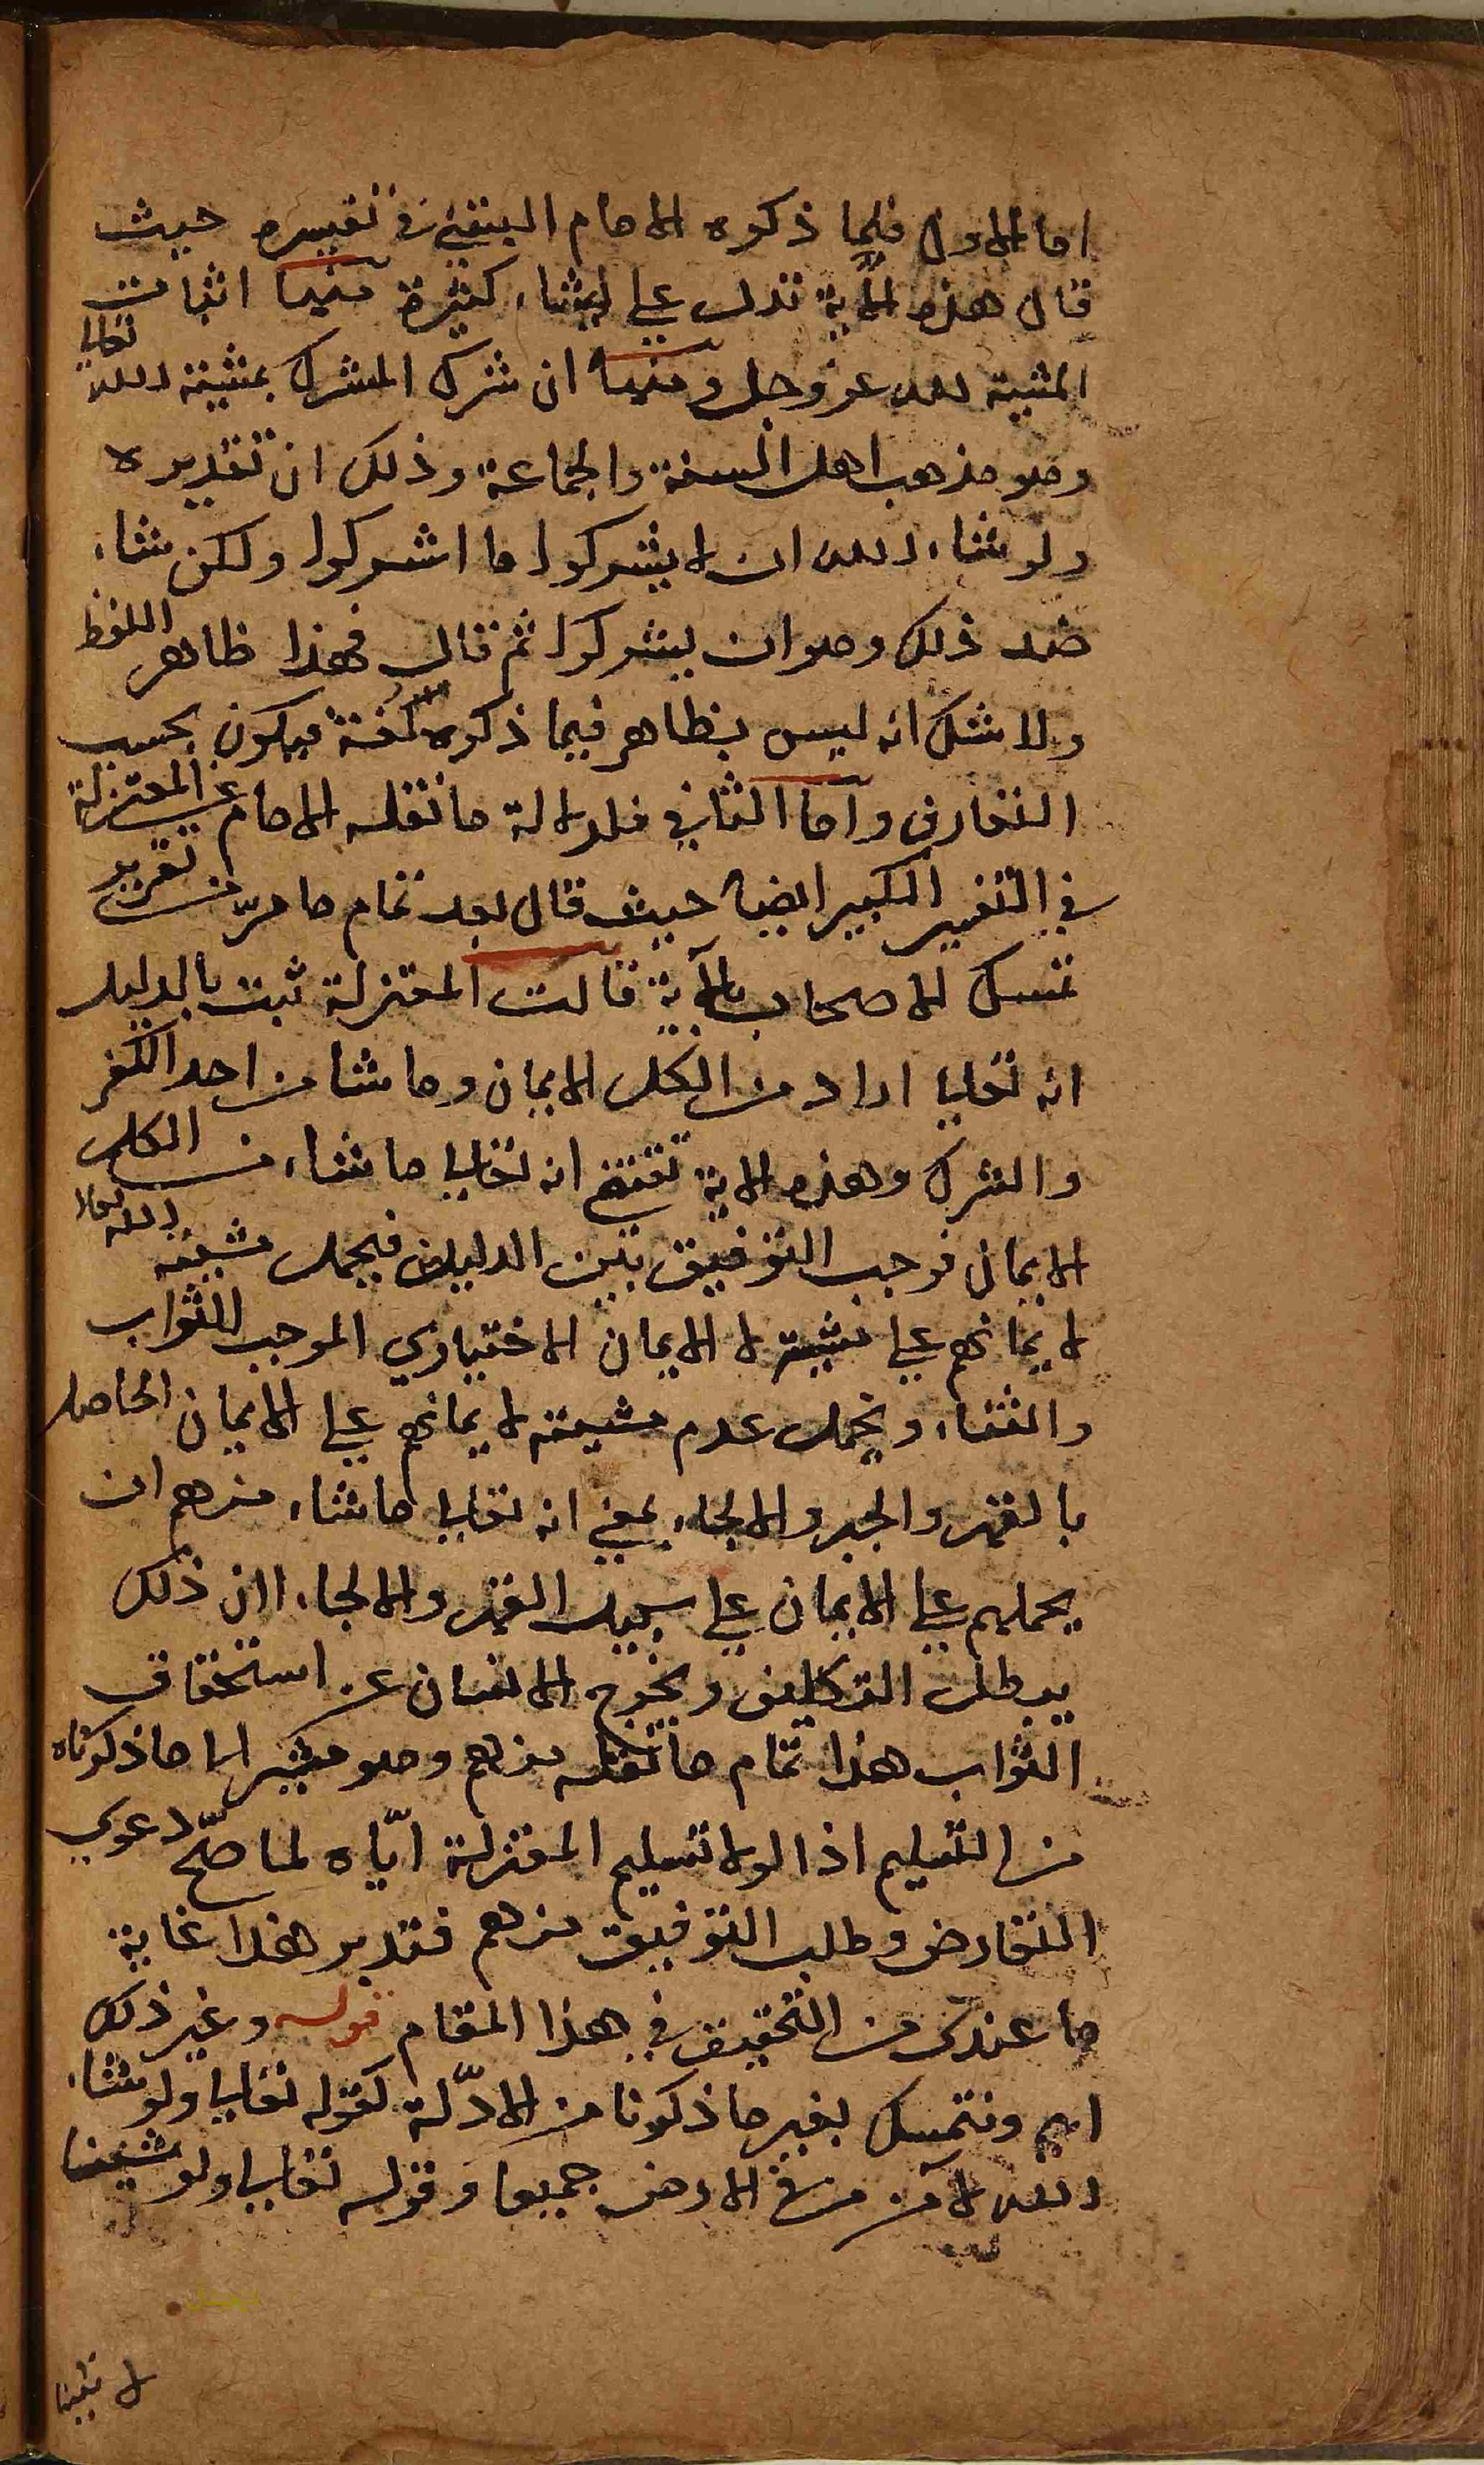 اما الاول فلما ذكره الامام النسفي في تفسيره حيث
قال هذه الآية تدل على اشياء كثيرة منها اثبات
المشية لله عز وجل ومنها ان شرك المشرك بمشيئة الله تعالى
وهو مذهب اهل السنة والجماعة وذلك ان تقديره
ولو شاء الله ان لا يشركوا ما اشركوا ولكن شاء
ضد ذلك وهو ان يشركوا ثم قال فهذا ظاهر اللفظ
ولا شك انه ليس بظاهر فيما ذكره لغة فيكون بحسب
التعارف واما الثاني فلدلالة ما نقله الامام عن المعتزلة
في التفسير الكبير ايضا حيث قال بعد تمام ما مرّ من تقرير
تمسك الاصحاب بالآية قالت المعتزلة ثبت بالدليل
انه تعالى اراد من الكل الايمان وما شا من احد الكفر
والشرك وهذه الاية تقتضي انه تعالى ما شاء من الكل
الايمان فوجب التوفيق بين الدليلين فيحمل مشيئة الله تعالى
لايمانهم على مشيته لا الايمان الاختياري الموجب للثواب
والثناء ويحمل عدم مشيئته لايمانهم على الايمان الحاصل
بالقهر والجبر والالجاء بمعنى انه تعالى ما شاء منهم ان
يحملهم على الايمان على سبيل القهر والالجاء اان ذلك
يبطل التكليف ويخرج الانسان عن استحقاق
الثواب هذا تمام ما نقله منهم وهو مشير الى ما ذكرناه
من التسليم اذ لولا تسليم المعتزلة ايّاه لما صحّ دعوى
التعارض وطلب التوفيق منهم فتدبر هذا غاية
ما عندى من التحقيق في هذا المقام قوله وغير ذلك
اى ونتمسك بغير ما ذكرنا من الادّلة كقوله تعالى ولو شاء
الله لآمن من في الارض جميعا وقوله تعالى ولو شئنا
لاتينا